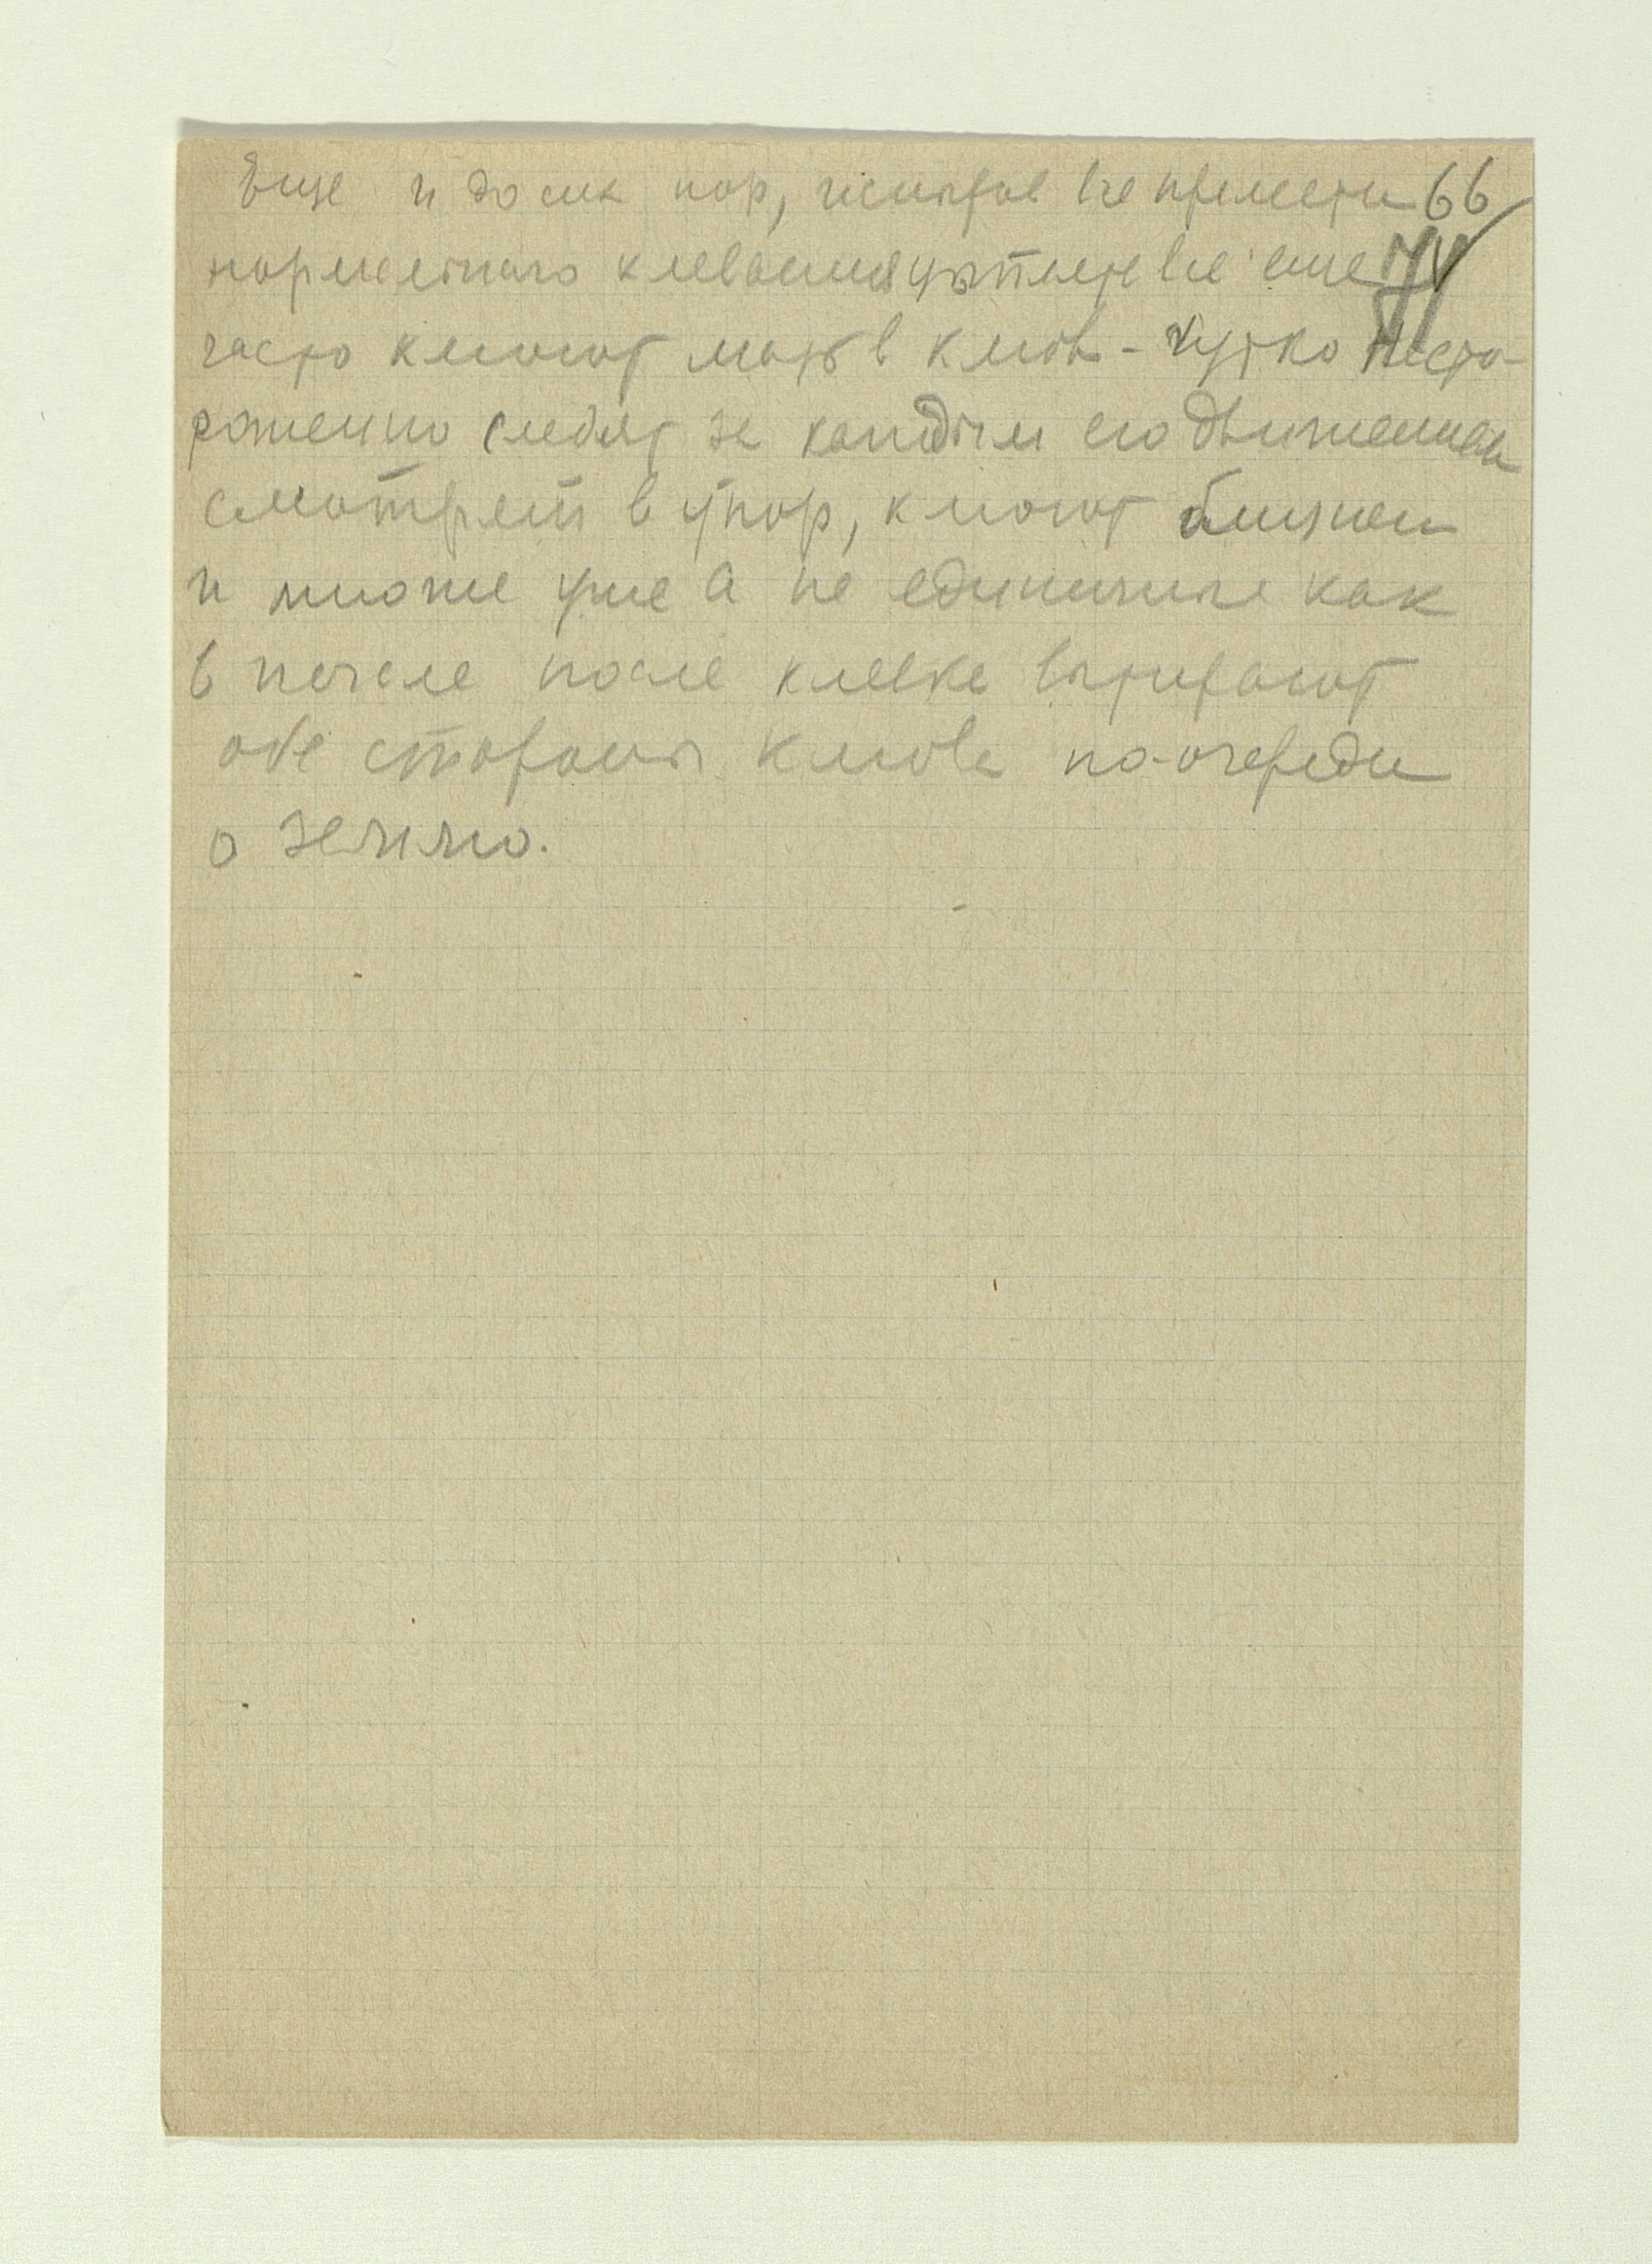 Еще и до сих пор, несмотря на приметы 66
нормального клевания цыплята все еще 74
часто клюют мать в клюв - чутко насто-
роженно следят за каждым его движением
смотрят в упор, клюют
и многие уже а не единичные как
в начале после клевка вытирают
обе стороны клюва по-очереди
о землю.